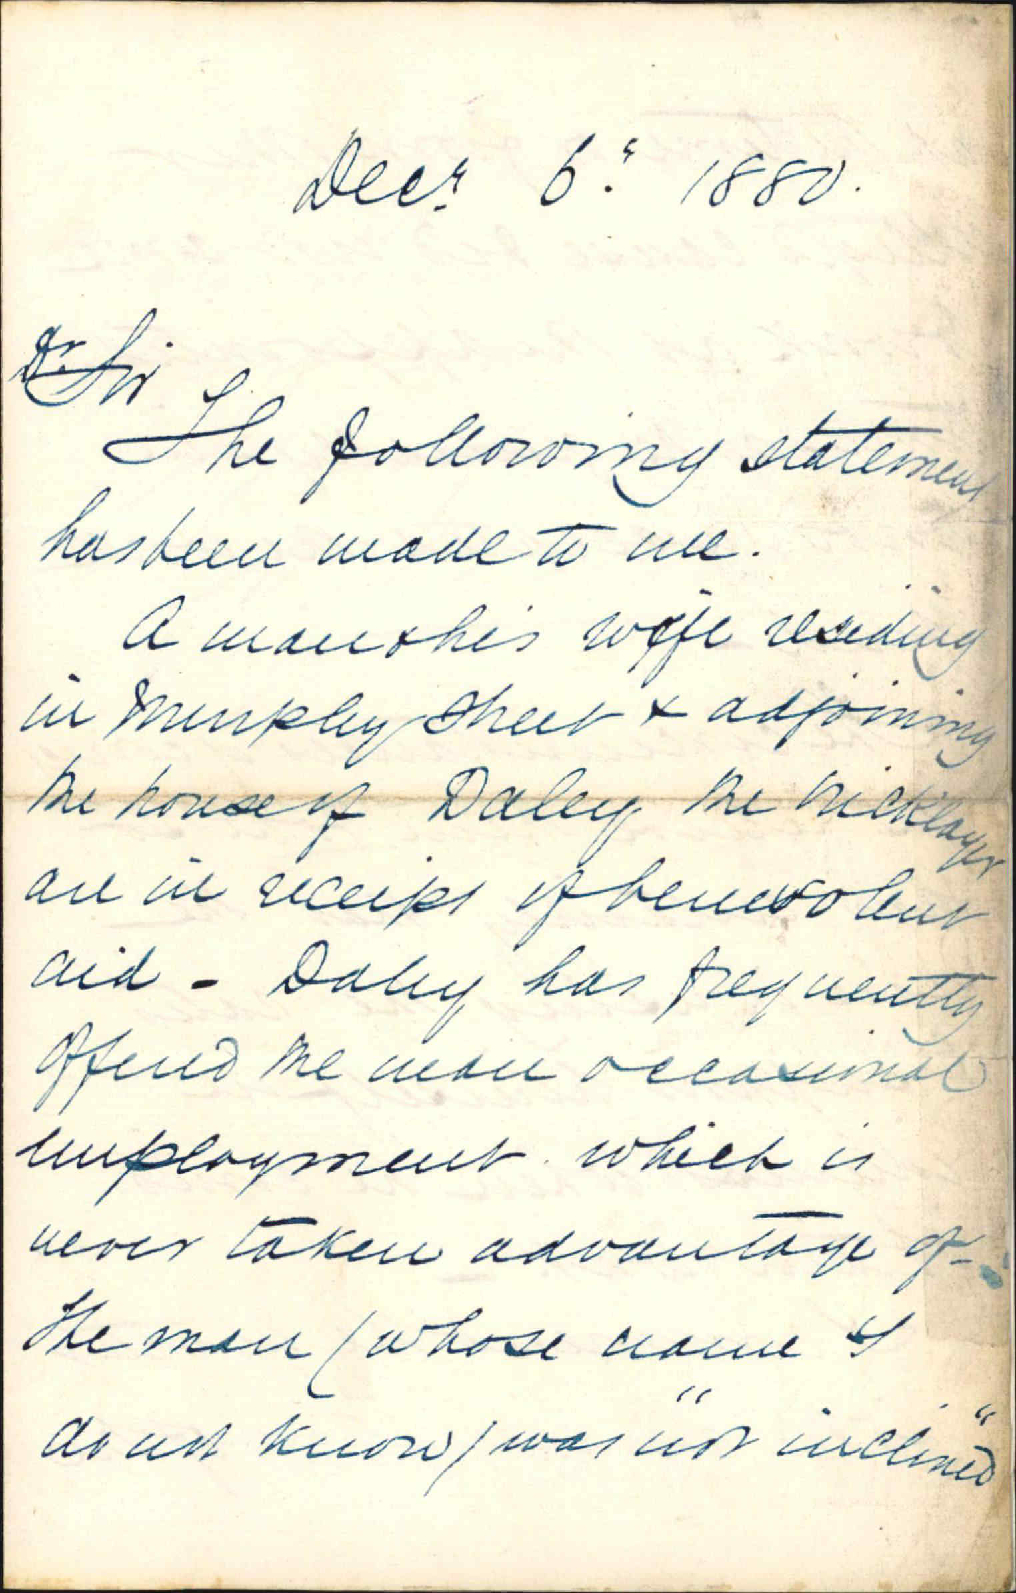 Decr. 6." 1880.
Dr Sir
The following statement
has been made to me.
A man & his wife residing
in Murphy Street & adjoining
the house of Daley the bricklayer
are in receipt of benevolent
aid - Daley has frequently
offered the man occasional
employment which is
never taken advantage of -
The man (whose name I
do not know) was "not inclined"